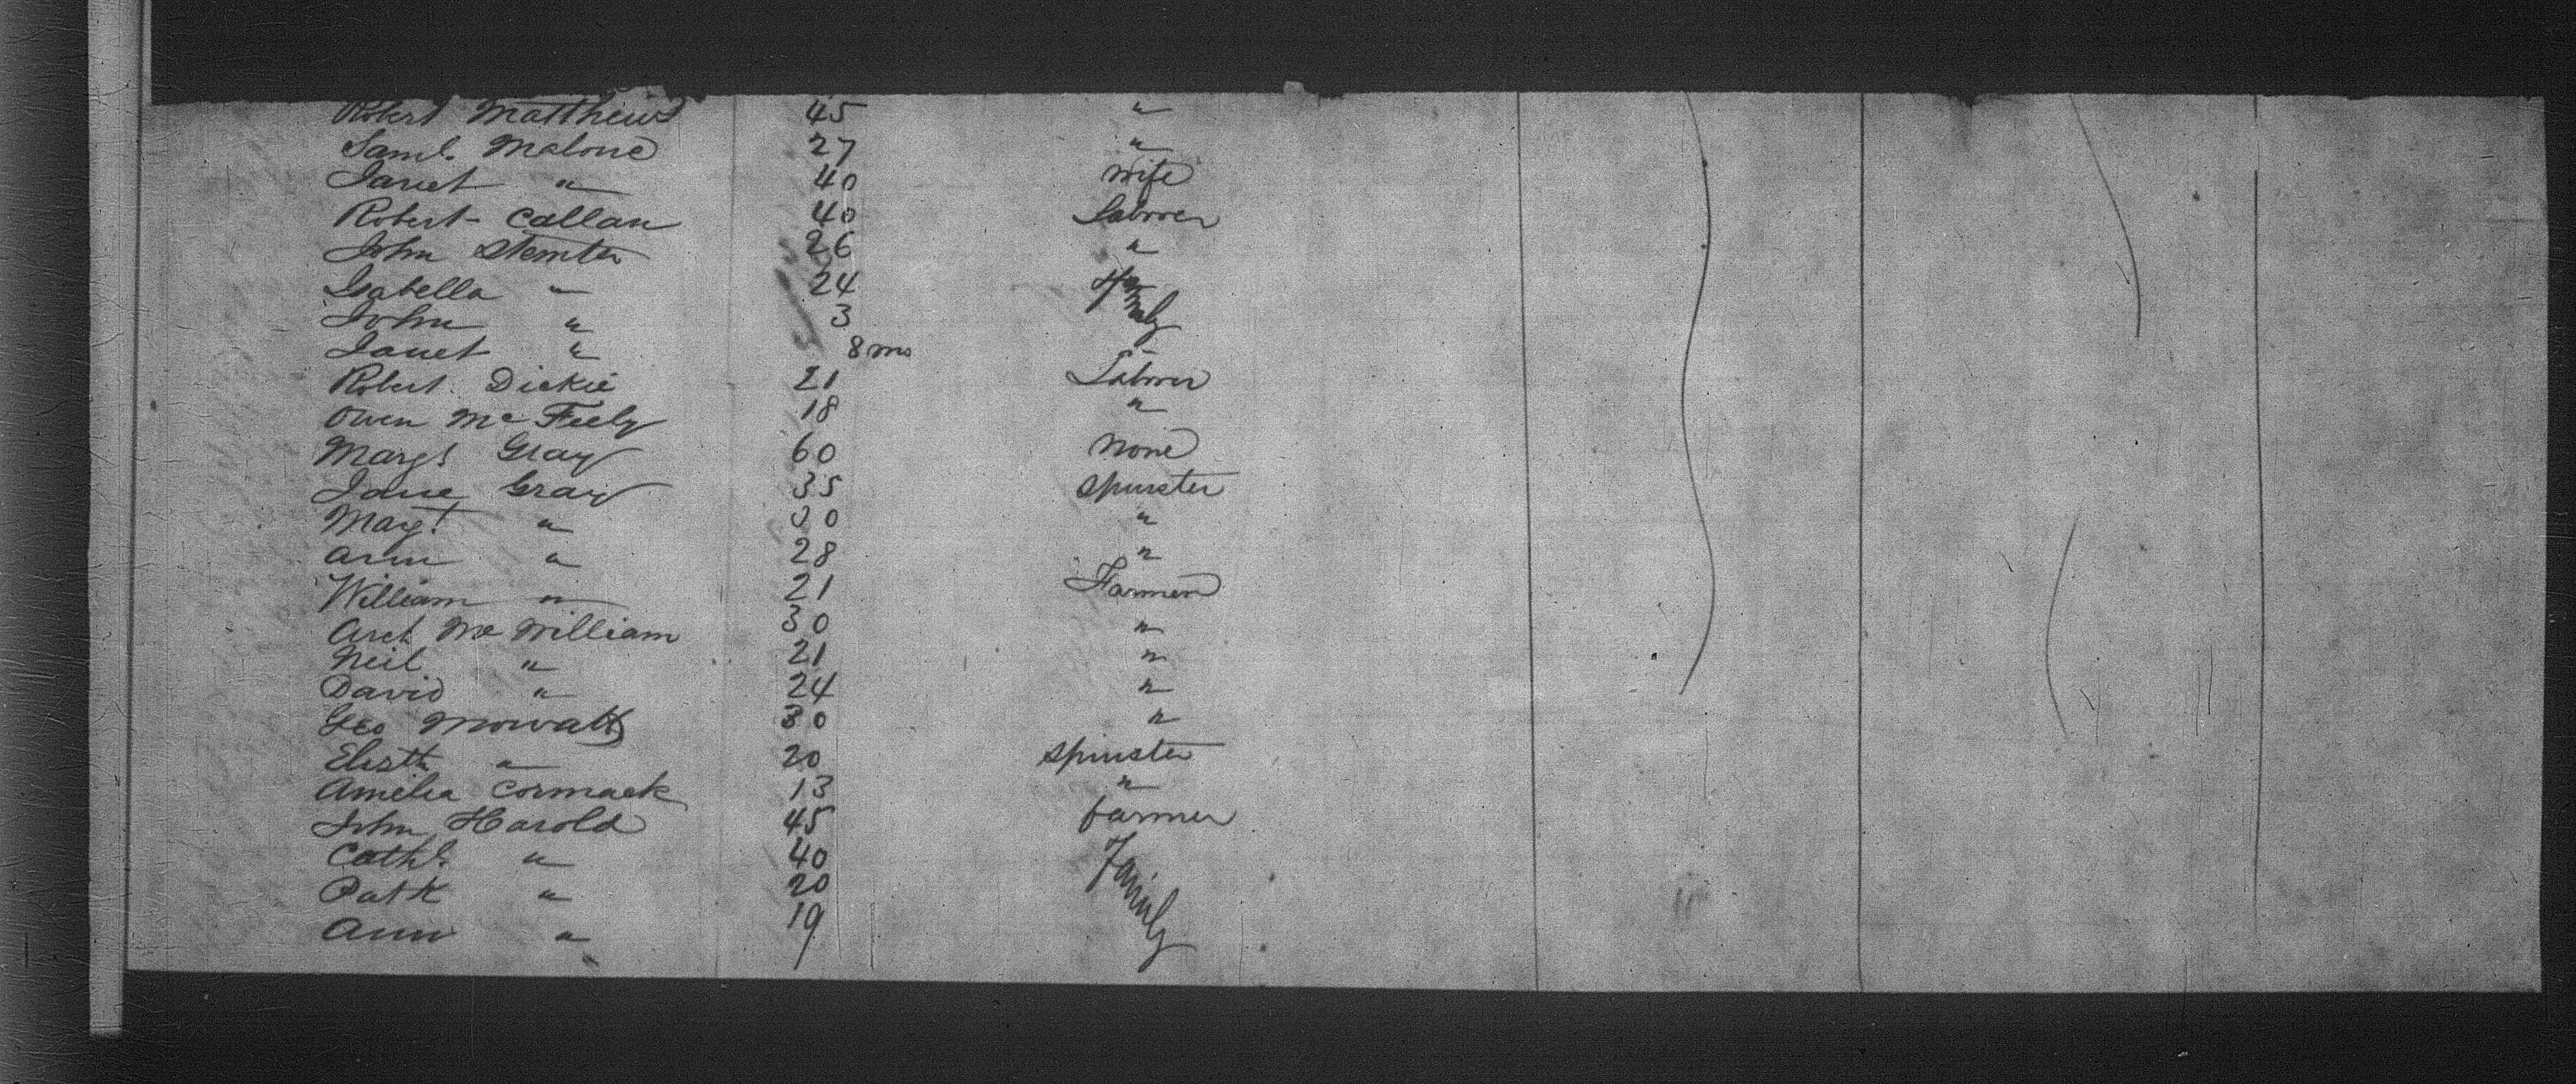 Robert Matthews 45 "
Saml. Malone 27 "
Janet " 40 Wife
Robert Callan 40 Labourer
John Stemter 26 "
Isabella " 24 Family
John " 3
Janet " 8 mo
Robert Dickie 21 Labourer
Owen McFeely 18 "
Margt Gray 60 None
Jane Gray 35 Spinster
Margt " 30 "
Ann " 28 "
William " 21 Farmer
Arch McWilliam 30 "
Neil " 21 "
David " 24 "
Geo Mowatt 30 "
Elizth " 20 Spinster
Amelia Cormack 13 "
John Harold 45 farmer
Cathe. " 40 Family
Patk " 20
Ann " 19